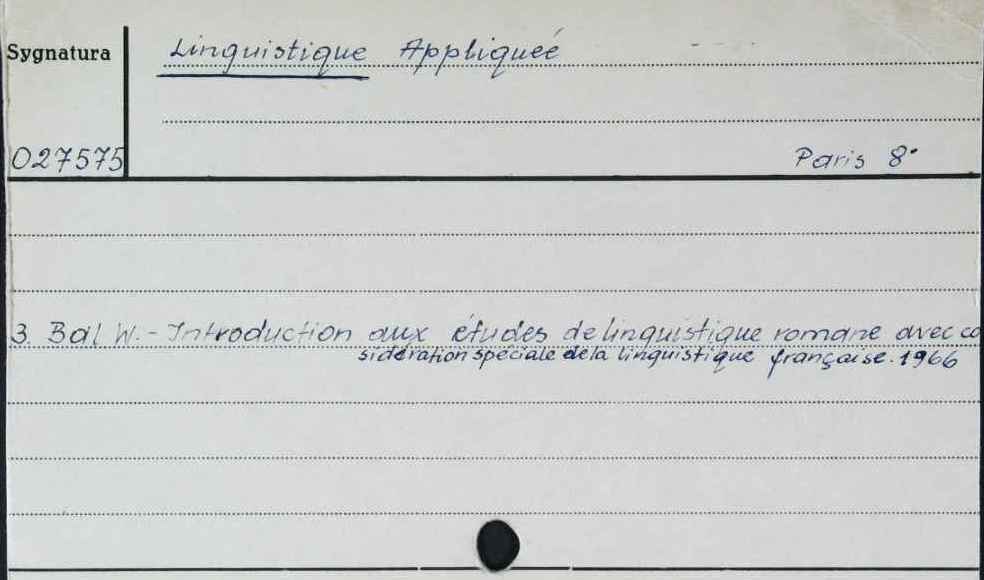 Sygnatura
Linguistique Appliqueé
027575
Paris 8°
3. Bal W. - Introduction aux études de linguistique romane avec co
sidération spéciale de la linguistique française. 1966